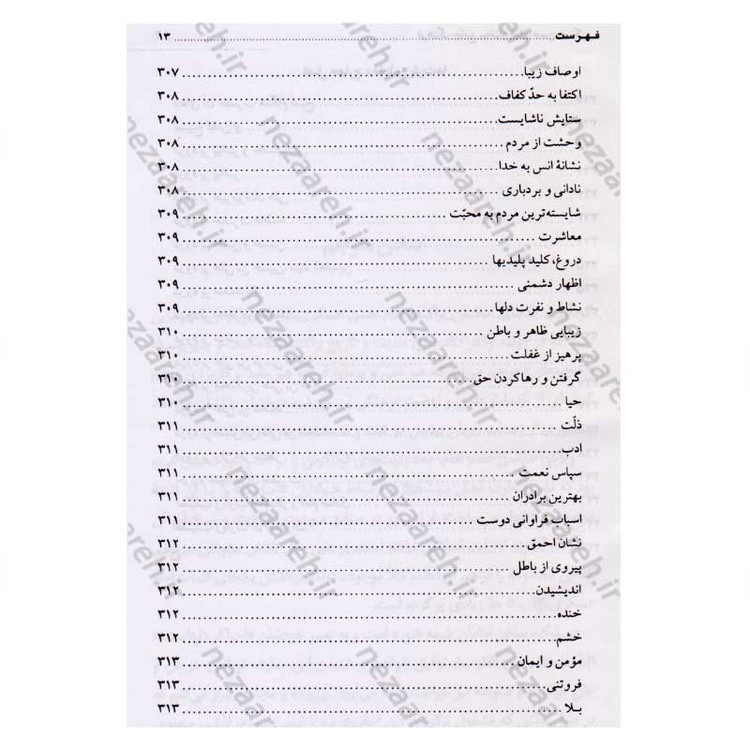 فهرست ........ ۱۳
اوصاف زیبا ........ ۳۰۷
اکتفا به حدّ کفاف ........ ۳۰۸
ستایش ناشایست ........ ۳۰۸
وحشت از مردم ........ ۳۰۸
نشانهٔ انس به خدا ........ ۳۰۸
نادانی و بردباری ........ ۳۰۸
شایسته‌ترین مردم به محبّت ........ ۳۰۹
معاشرت ........ ۳۰۹
دروغ، کلید پلیدیها ........ ۳۰۹
اظهار دشمنی ........ ۳۰۹
نشاط و نفرت دلها ........ ۳۰۹
زیبایی ظاهر و باطن ........ ۳۱۰
پرهیز از غفلت ........ ۳۱۰
گرفتن و رهاکردن حق ........ ۳۱۰
حیا ........ ۳۱۰
ذلّت ........ ۳۱۱
ادب ........ ۳۱۱
سپاس نعمت ........ ۳۱۱
بهترین برادران ........ ۳۱۱
اسباب فراوانی دوست ........ ۳۱۱
نشان احمق ........ ۳۱۲
پیروی از باطل ........ ۳۱۲
اندیشیدن ........ ۳۱۲
خنده ........ ۳۱۲
خشم ........ ۳۱۲
مؤمن و ایمان ........ ۳۱۳
فروتنی ........ ۳۱۳
بلا ........ ۳۱۳
nezaareh.ir